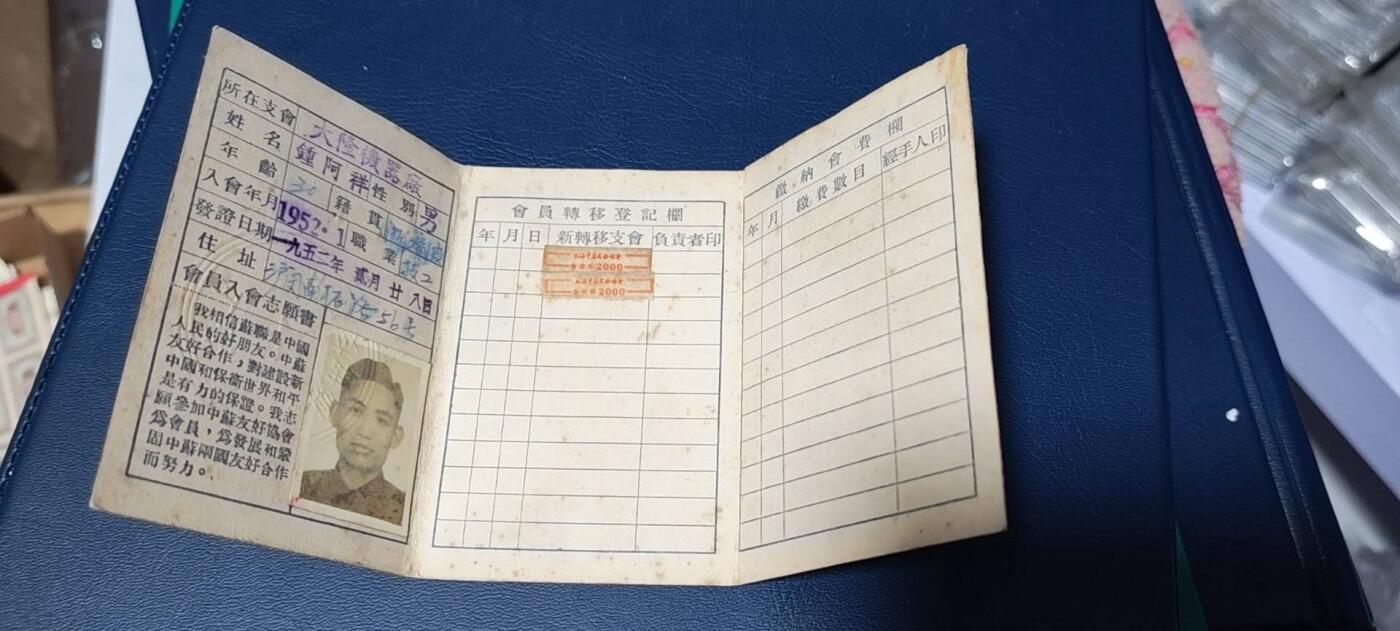 所在支會 大隆機器廠
姓名 鍾阿祥 性別 男
年齡 30 籍貫
入會年月 1952.1 職業 技工
發證日期 一九五二年 貳月 廿八日
住址 56号
會員入會志願書
我相信蘇聯是中國
人民的好朋友。中蘇
友好合作，對建設新
中國和保衛世界和平
是有力的保證。我志
願參加中蘇友好協會
爲會員，爲發展和鞏
固中蘇兩國友好合作
而努力。
會員轉移登記欄
年 月 日 新轉移支會 負責者印
2000
2000
繳納會費欄
年 月 繳費數目 經手人印